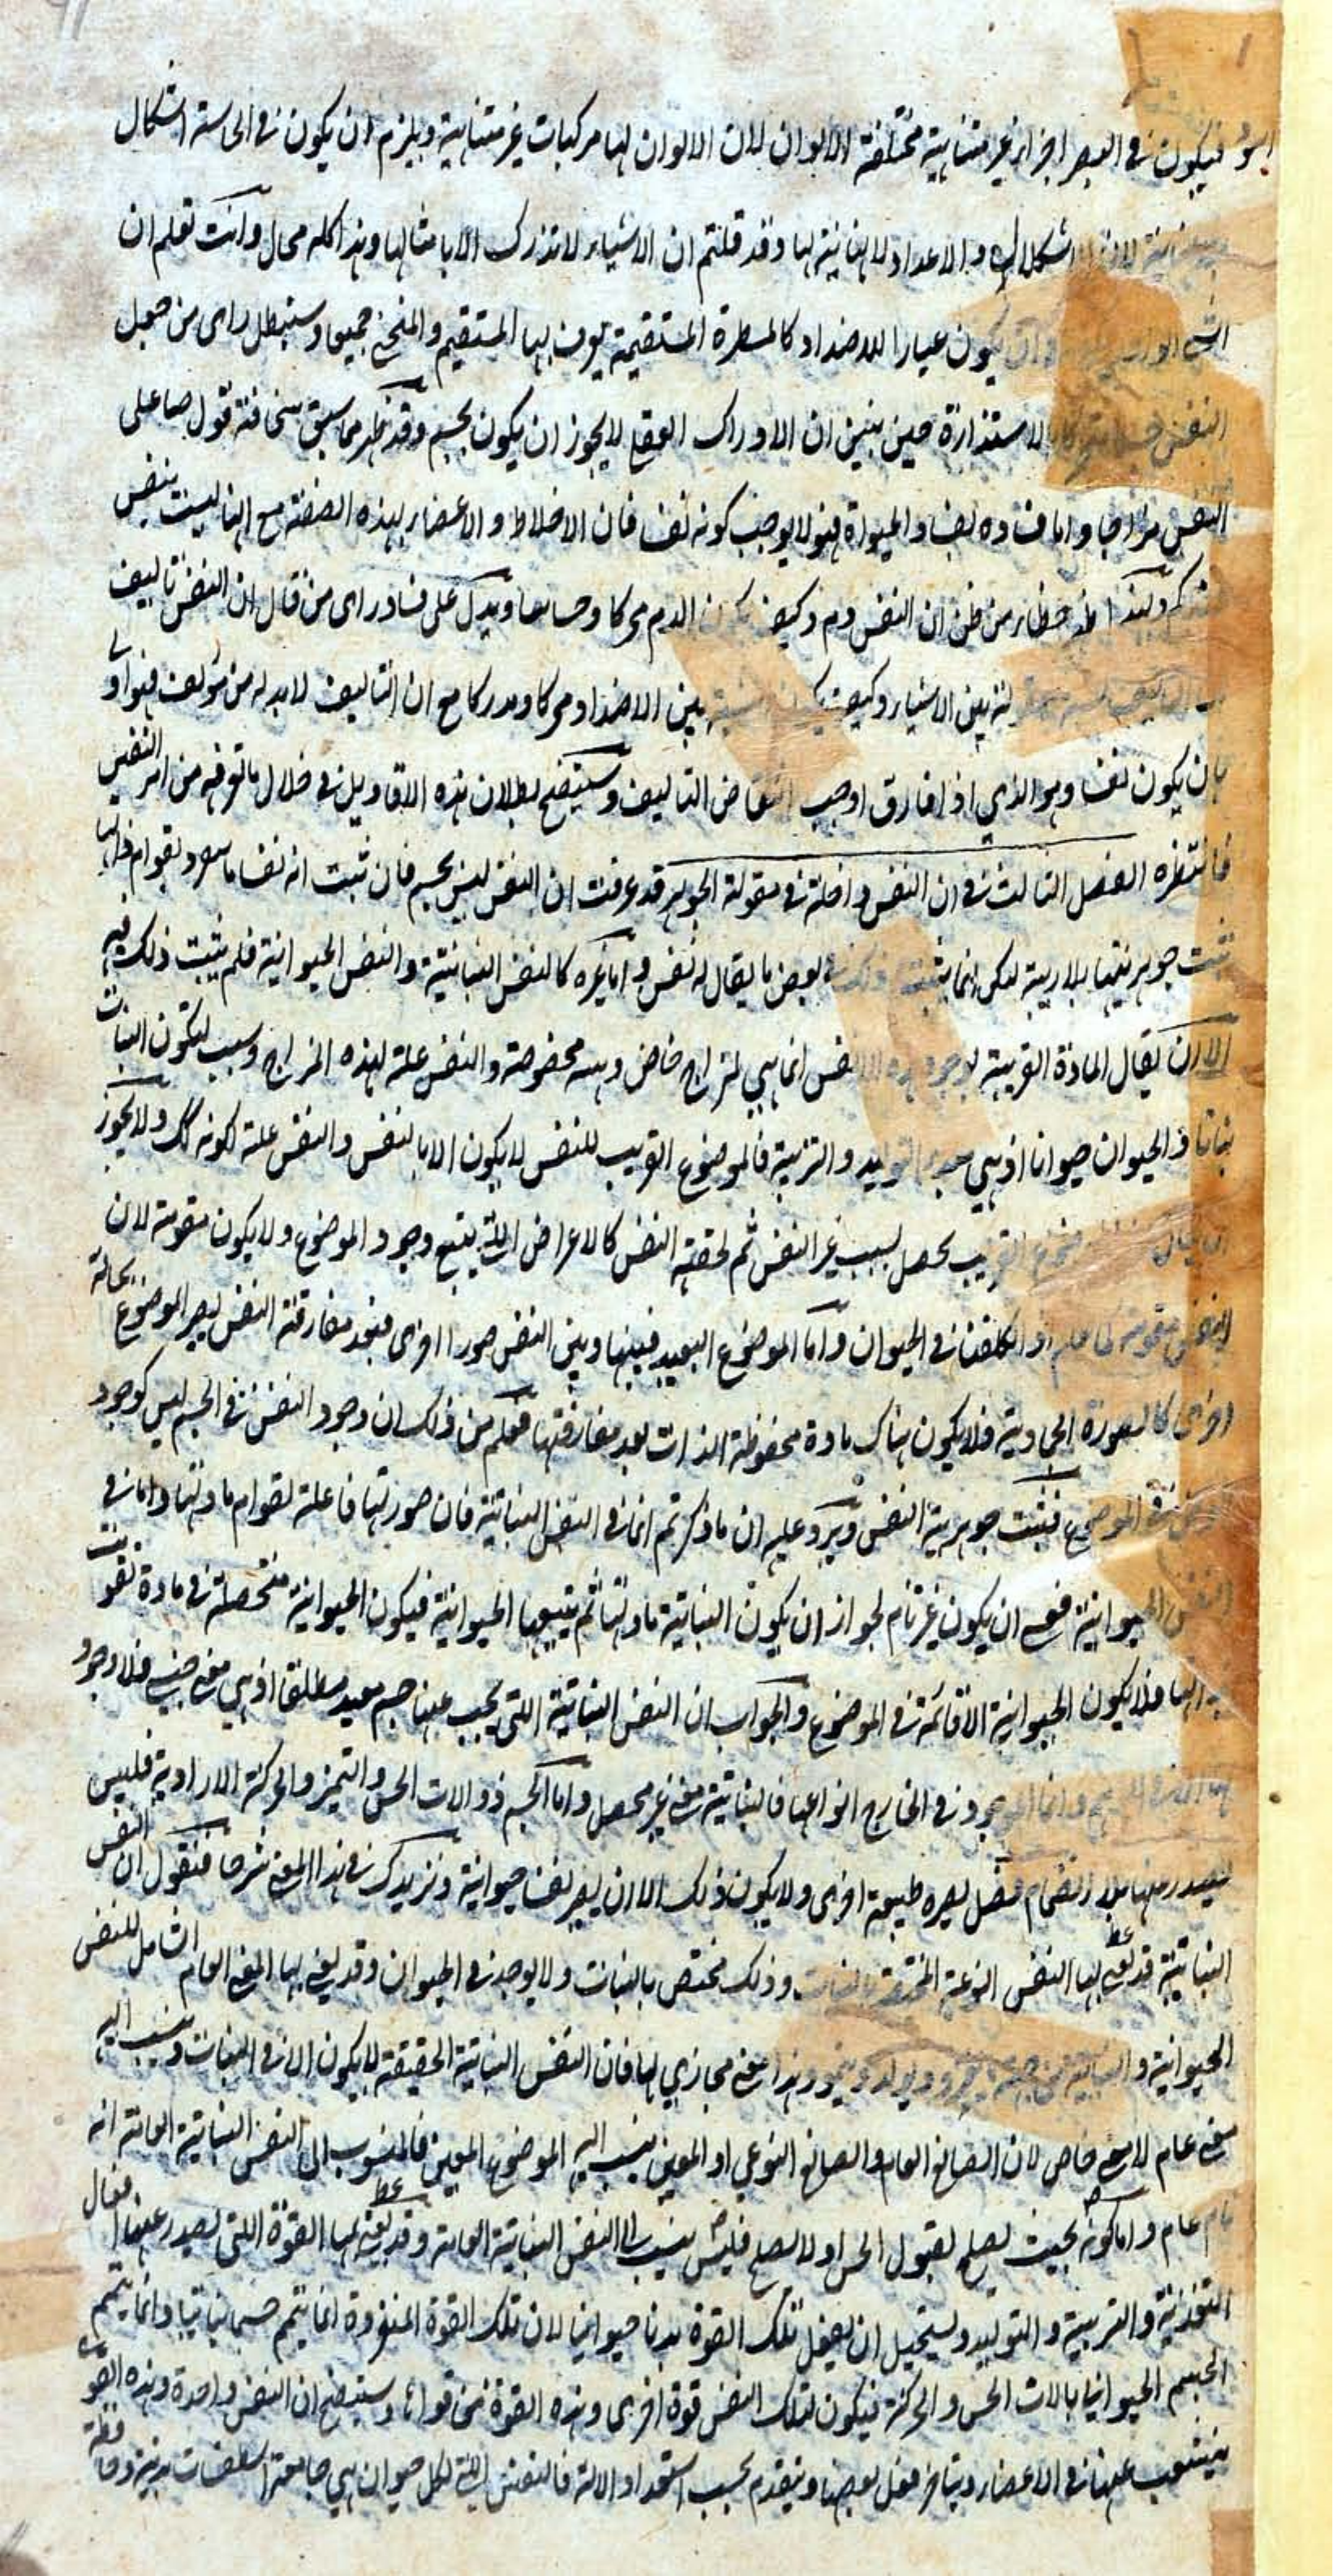 فيكون في البصر اجزاء غير متناهية مختلفة الالوان لان الالوان لها مركبات غير متناهية ويلزم ان يكون في الحاسة اشكال
لان الاشكال والاعداد لا نهاية لها وقد قلتم ان الاشياء لا تدرك الا بامثالها وهذا كله محال وانت تعلم ان
يكون عيارا للاضداد كالمسطرة المستقيمة يعرف بها المستقيم والمنحني جميعا وسنبطل راى من جعل
النفس الاستدارة حين نبين ان الادراك العقلي لا يجوز ان يكون بجسم وقد ظهر مما سبق سخافة قول صاعلى
النفس مزاجا واما فساده لفساد الحيوة فهو لا يوجب كونه نفسا فان الاخلاط والاعضاء بهذه الصفة مع انها ليست بنفس
خطاء من ظن ان النفس دم وكيف يكون الدم محركا وحساسا ويدل على فساد راى من قال ان النفس تاليف
بين الاشياء وكيف يكون بين الاضداد محركا ومدركا مع ان التاليف لا بد له من مؤلف فهو اولى
بان يكون نفسا وهو الذي اذا فارق اوجب انتقاض التاليف وسيتضح بطلان هذه الاقاويل في خلال ما نعرفه من امر النفس
فانتظره الفصل الثالث في ان النفس داخلة في مقولة الجوهر قد عرفت ان النفس ليس بجسم فان ثبت انه نفسا ما قوام ذاتها
ثبت جوهريتها بلا ريبة لكن انما يثبت ذلك في بعض ما يقال له نفس واما غيره كالنفس النباتية والنفس الحيوانية فلم يثبت ذلك فيه
الا ان يقال المادة القريبة لوجود هذه الانفس انما هي لمزاج خاص وهيئة مخصوصة والنفس علة لهذه المزاج وسبب لتكون النبات
نباتا والحيوان حيوانا اذ هي التوليد والتربية فالموضوع القريب للنفس لا يكون الا بالنفس والنفس علة لكونه كك ولا يجوز
ان يقال القريب يحصل بسبب غير النفس ثم لحقته النفس كالاعراض التي يتبع وجود الموضوع ولا يكون مقومة لان
النفس مقومة في الحيوان واما الموضوع البعيد فبينها وبين النفس صورا اخرى فبعد مفارقة النفس يصير الموضوع بحالة
اخرى كالصورة الجمادية فلا يكون هناك مادة محفوظة الذات بعد مفارقتها فعلم من ذلك ان وجود النفس في الجسم ليس كوجود
العرض في الموضوع فيثبت جوهرية النفس ويرد عليه ان ما ذكرتم انما في النفس النباتية فان صورتها فاعلة لقوام مادتها واما في
النفس الحيوانية فعسى ان يكون غير تام لجواز ان يكون النباتية مادتها ثم يتبعها الحيوانية فيكون الحيوانية متحصلة في مادة تقومت
بذاتها فلا يكون الحيوانية الا قائمة في الموضوع والجواب ان النفس النباتية التي يجب عنها جسم مطلقا اذ هي معنى جنسي فلا وجود
وانما الموجود في الخارج انواعها فالنباتية معنى غير محصل واما الجسم ذو الات الحس والتميز والحركة الارادية فليس
يصدر منها بلا انضمام فصل يصيره طبيعة اخرى ولا يكون ذلك الا ان يصير نفسا حيوانية ونزيدك في هذا المعنى شرحا فنقول ان النفس
النباتية قد يعنى بها النفس النوعية المختصة بالنبات وذلك مختص بالنبات ولا يوجد في الحيوان وقد يعنى بها المعنى العام الشامل للنفس
الحيوانية والنباتية وهذا معنى مجازي لها فان النفس النباتية الحقيقة لا يكون الا في النبات وينسب اليه
معنى عام لا معنى خاص لان الصانع العام والصانع النوعي او المعين ينسب اليه الموضوع المعين فالمنسوب الى النفس النباتية العامة انه
نام عام واما كونه بحيث يصلح لقبول الحس او لا يصلح فليس ينسب الى النفس النباتية العامة وقد يعنى بها القوة التي يصدر عنها افعال
التغذية والتربية والتوليد ويستحيل ان يفعل تلك القوة بدنا حيوانيا لان تلك القوة المنفردة انما يتم جسما نباتيا وانما يتم
الجسم الحيوانيا بالات الحس والحركة فيكون لتلك النفس قوة اخرى وهذه القوة من قوائها وسيتضح ان النفس واحدة وهذه القوى
ينشعب عنها في الاعضاء ويتاخر فعل بعضها ويتقدم بحسب استعداد الالة فالنفس التي لكل حيوان هي جامعة اسطقسات بدنه